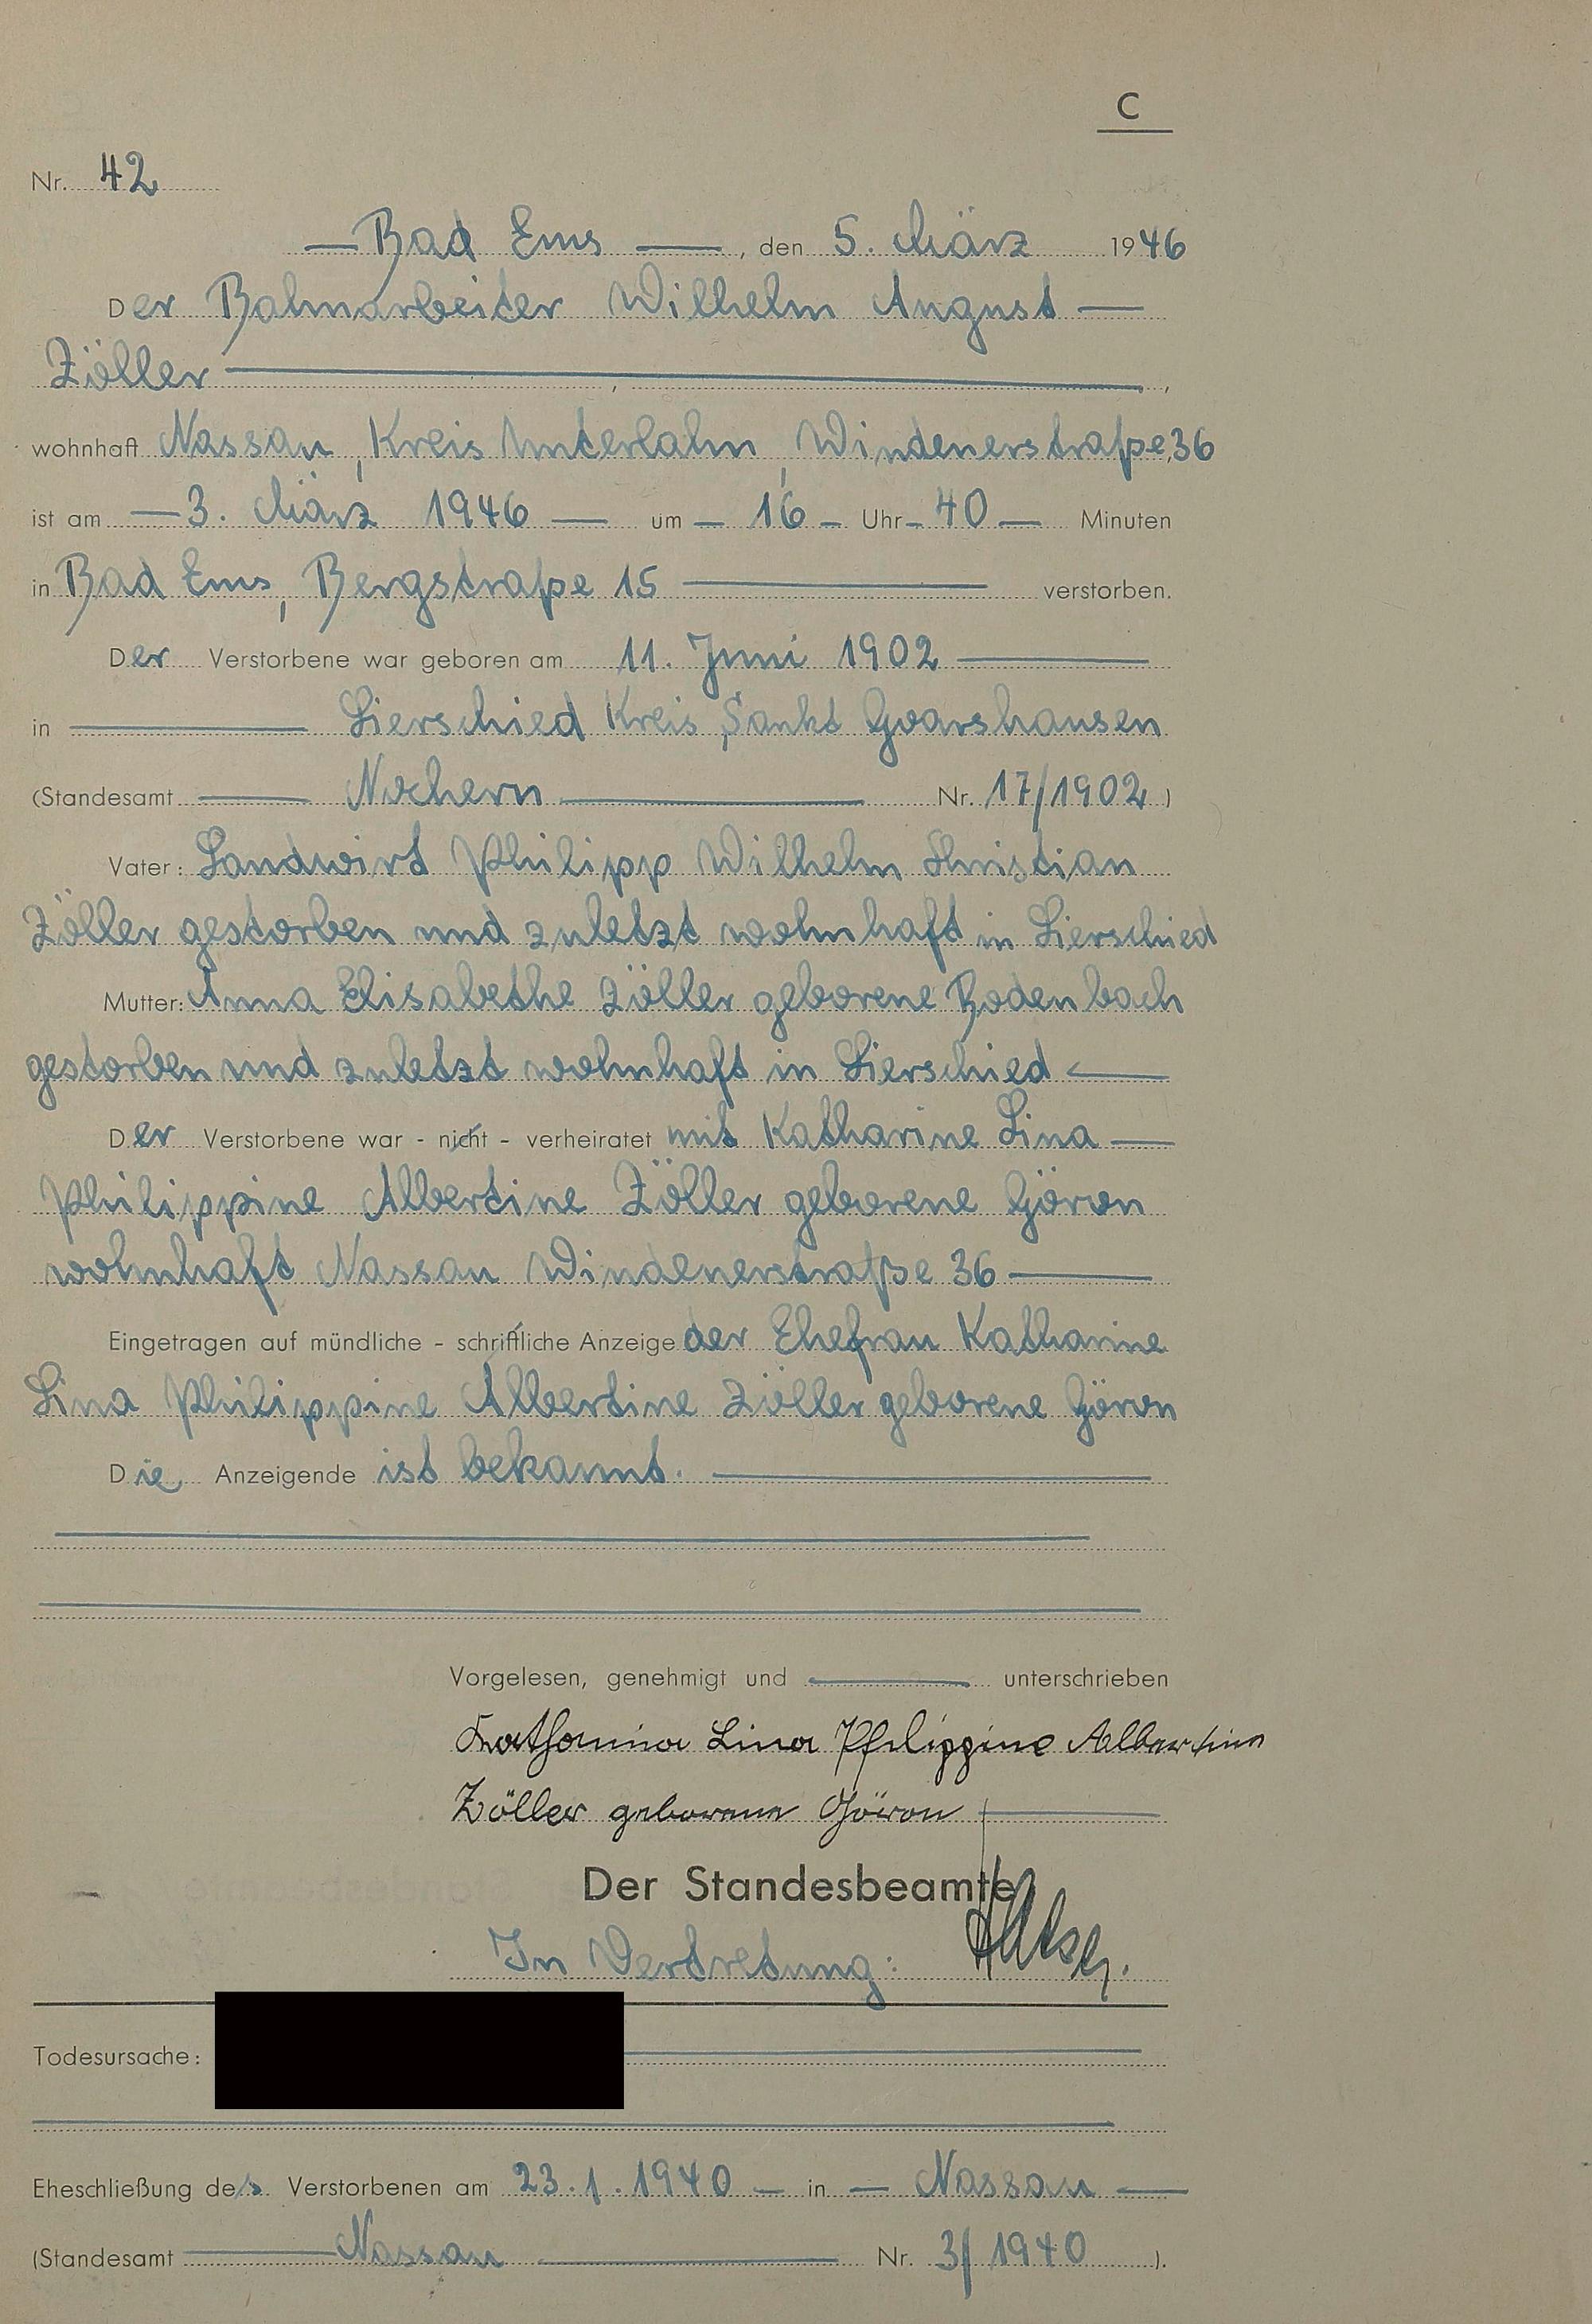 C
Nr. 42
Bad Ems, den 5. März 1946
Der Bahnarbeiter Wilhelm August
Zöller
wohnhaft Nassau, Kreis Unterlahn, Windenerstraße 36
ist am 3. März 1946 um 16 Uhr 40 Minuten
in Bad Ems, Bergstraße 15 verstorben.
Der Verstorbene war geboren am 11. Juni 1902
in Lierschied Kreis Sankt Goarshausen
(Standesamt Nochern Nr. 17/1902)
Vater: Landwirt Philipp Wilhelm Christian
Zöller gestorben und zuletzt wohnhaft in Lierschied
Mutter: Anna Elisabethe Zöller geborene Bodenbach
gestorben und zuletzt wohnhaft in Lierschied
Der Verstorbene war - nicht - verheiratet mit Katharine Lina
Philippine Albertine Zöller geborene Göron
wohnhaft Nassau Windenerstraße 36
Eingetragen auf mündliche - schriftliche Anzeige der Ehefrau Katharine
Lina Philippine Albertine Zöller geborene Göron
Die Anzeigende ist bekannt.
Vorgelesen, genehmigt und unterschrieben
Katharina Lina Philippine Albertine
Zöller geborene Göron
Der Standesbeamte
In Vertretung:
Todesursache:
Eheschließung des Verstorbenen am 23.1.1940 in Nassau
(Standesamt Nassau Nr. 3/1940).